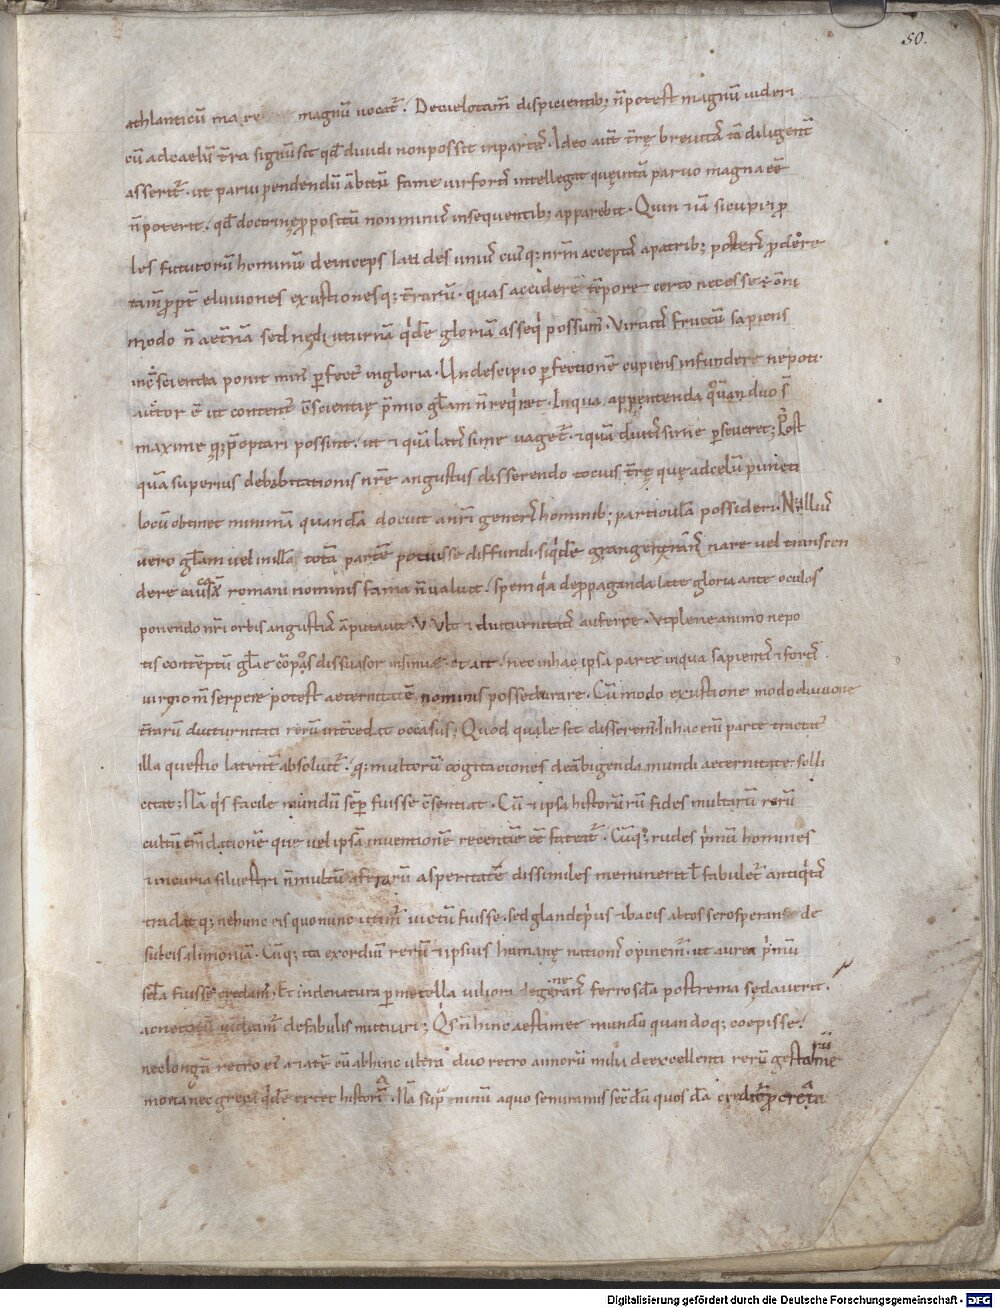 50.
athlanticū mare magnū uocat̄. De cuelo tam̄ dispicientib; n̄ potest magnū uideri
cū ad caelū t̄ra signū sit qđ diuidi non possit in partes. Ideo aut̄ t̄rę breuitas tā diligent̄
asserit̄. ut parui pendendū ābitū fame uir fortis intellegat quę in tā paruo magna eē
n̄ poterit. qđ doctrinę ppositū non minus in sequentib; apparebit. Quin etiā si cupiat p
les futurorū hominū deinceps laudes unius cuiusq; nr̄m acceptas a patrib; posteris pdere
tam̄ ppt̄ eluuiones exustionesq; t̄rarū. quas accidere tēpore certo necesse ē. ōni
modo n̄ aet̄nā sed ne diuturnā qđē gloriā asseq̄ possum̄. Virtutis fructū sapiens
in c̄scientia ponit min̄ pfect̄ in gloria. Unde scipio pfectionē cupiens infundere nepoti.
auctor ē ut content̄ c̄scientię p̄mio gl̄am n̄ req̄rat. In qua appetenda qm̄ duo s̄
maxime q; p̄optari possint. ut et quā latissime uaget̄. et quā diutissime perseueret; Post
quā superius de habitationis nr̄e angustiis disserendo totius t̄rę quę ad celū puncti
locū obtinet minimā quandā docuit a nr̄i generis hominib; particulā possideri. Nullius
uero gl̄am uel in illā totā partē potuisse diffundi. siqđē gangen tranare uel transcen
dere caucasū romani nominis fama n̄ ualuit. spem q̄a de ppaganda late gloria ante oculos
ponendo nr̄i orbis angustias āputauit. Vult et diuturnitatis auferre. Vt plene animo nepo
tis contēptū gl̄ae cōpos dissuasor insinuet et ait. nec in hac ipsa parte in qua sapientis et fortis
uiri nom̄ serpere potest aeternitatē nominis posse durare. Cū modo exustione modo eluuione
t̄rarū diuturnitati rerū intcedat occasus; Quod quale sit disserem̄. In hac enī parte tractat̄
illa questio latent̄ absoluit̄. q; multorū cogitationes de ābigenda mundi aeternitate solli
citat; Nā q̄s facile mundū sēp fuisse c̄sentiat. Cū et ipsa historiarū fides multarū rerū
cultū em̄dationē que uel ipsā inuentionē recentē eē fateat̄. Cūq; rudes p̄mū homines
et incuria siluestri n̄ multū a ferarū asperitate dissimiles meminerit l̄ fabulet̄ antiq̄tas
tradatq; nec hunc eis quo nunc utim̄ uictū fuisse. sed glande p̄us et bacis altos sero sperasse de
sulcis alimoniā. Cūq; ita exordiū rerū et ipsius humanę nationis opinem̄. ut aurea p̄mū
scl̄a fuisse credam̄. Et inde natura p metalla uiliora degenerans ferro scl̄a postrema fędauerit.
ac ne totū uideam̄ de fabulis mutuari; Q̄s n̄ hinc aestimet mundū quandoq; coepisse.
nec longā retro ei aetatē cū abhinc ultra duo retro annorū milia de excellenti rerū gestarū me
moria nec greca qđē extet historia. Nā sup ninū a quo semiramis secdū quosdā creditur pcreata
Digitalisierung gefördert durch die Deutsche Forschungsgemeinschaft - DFG